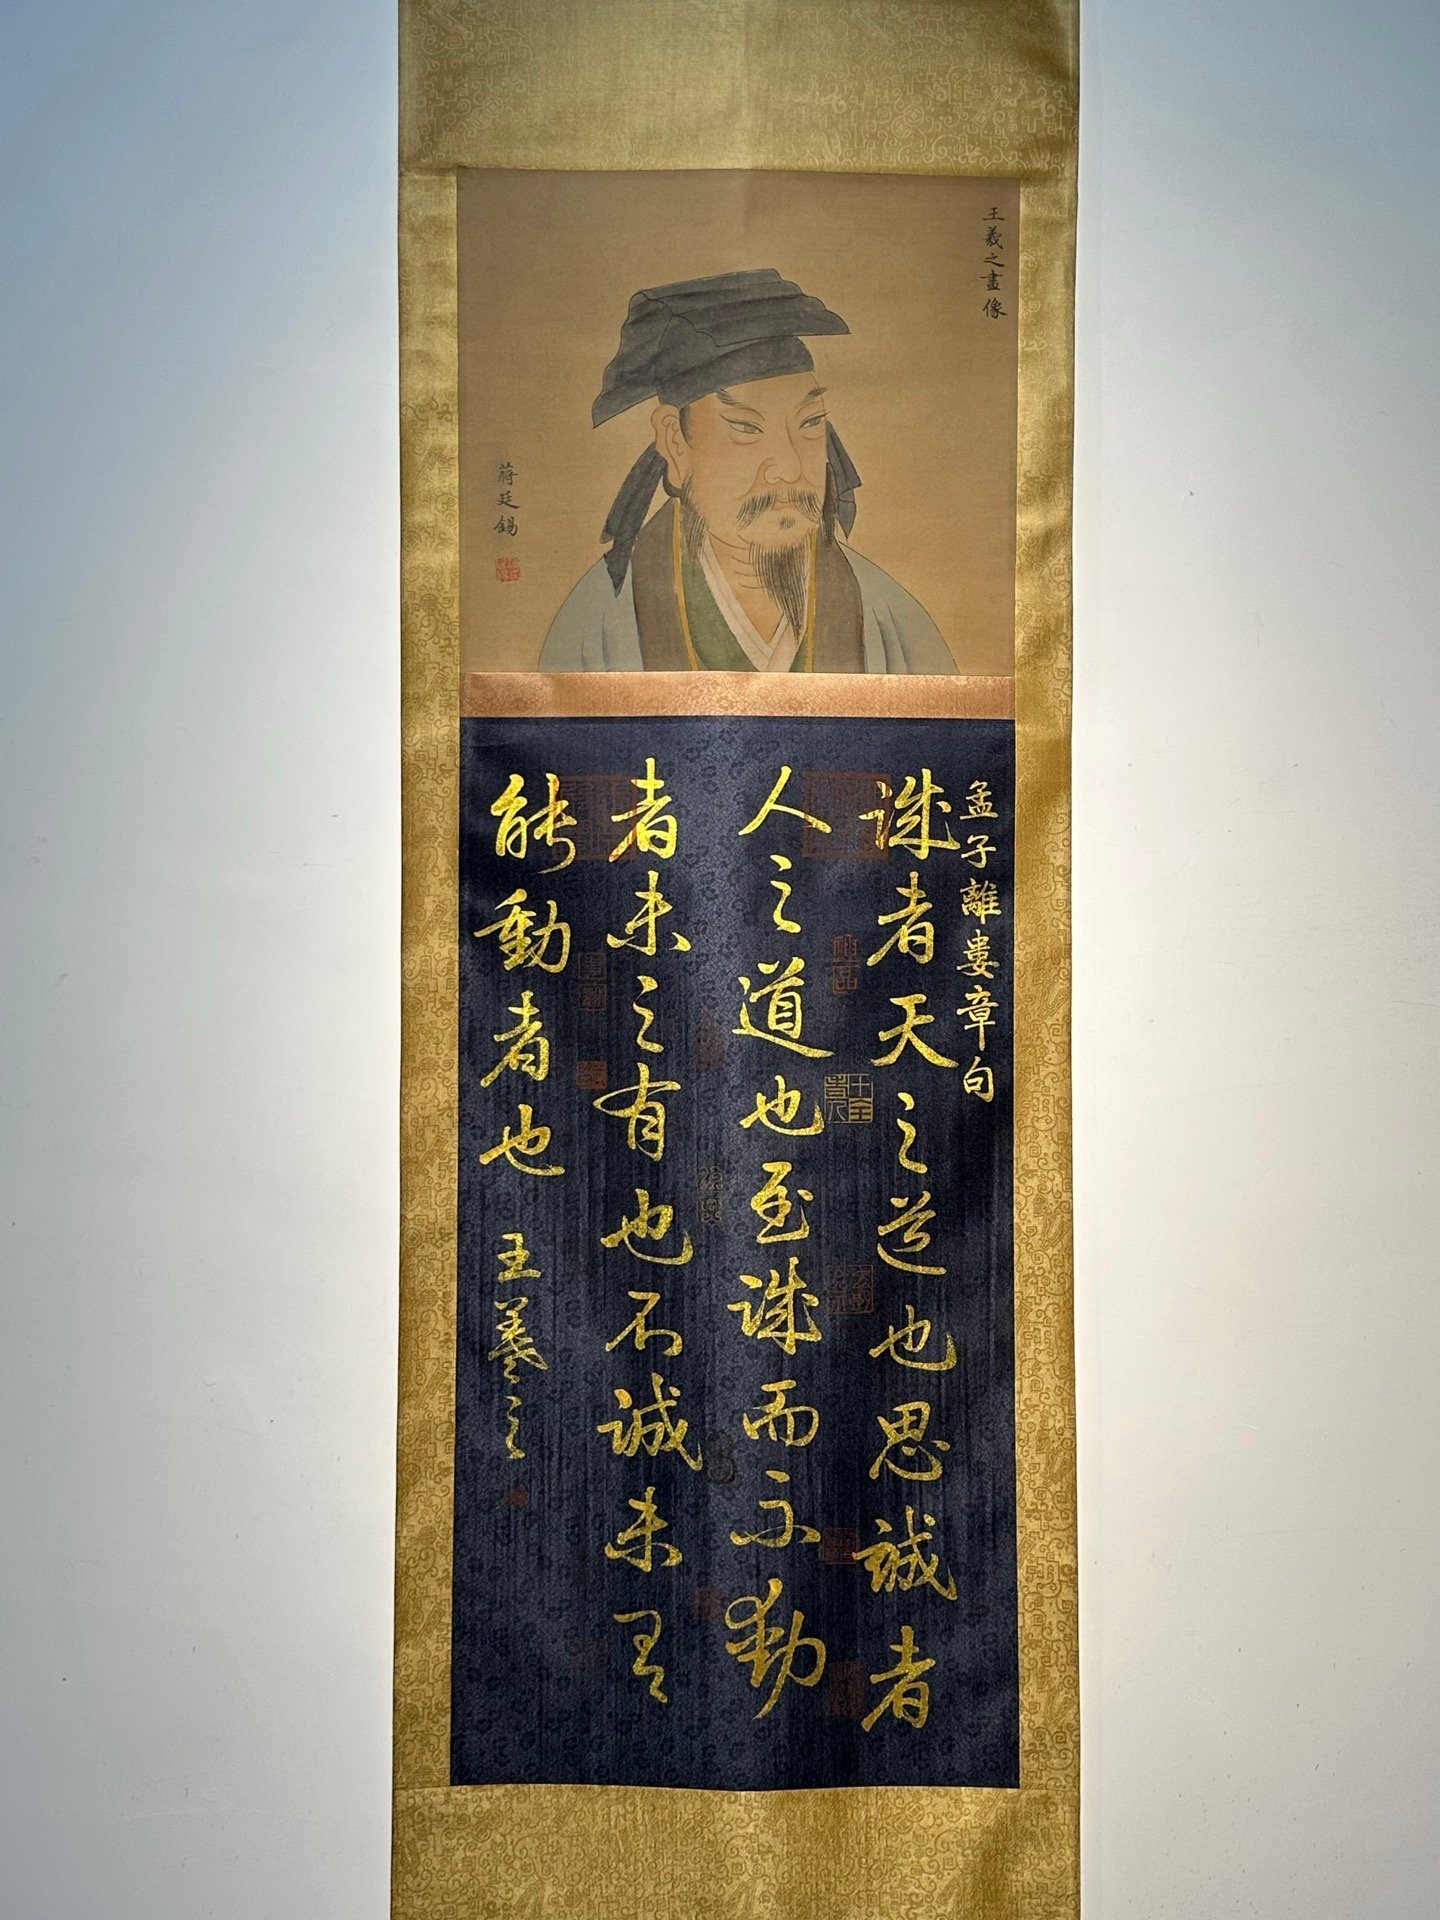 王羲之畫像
蔣廷錫
孟子離婁章句
誠者天之道也思誠者
人之道也至誠而不動
者未之有也不誠未有
能動者也
王羲之